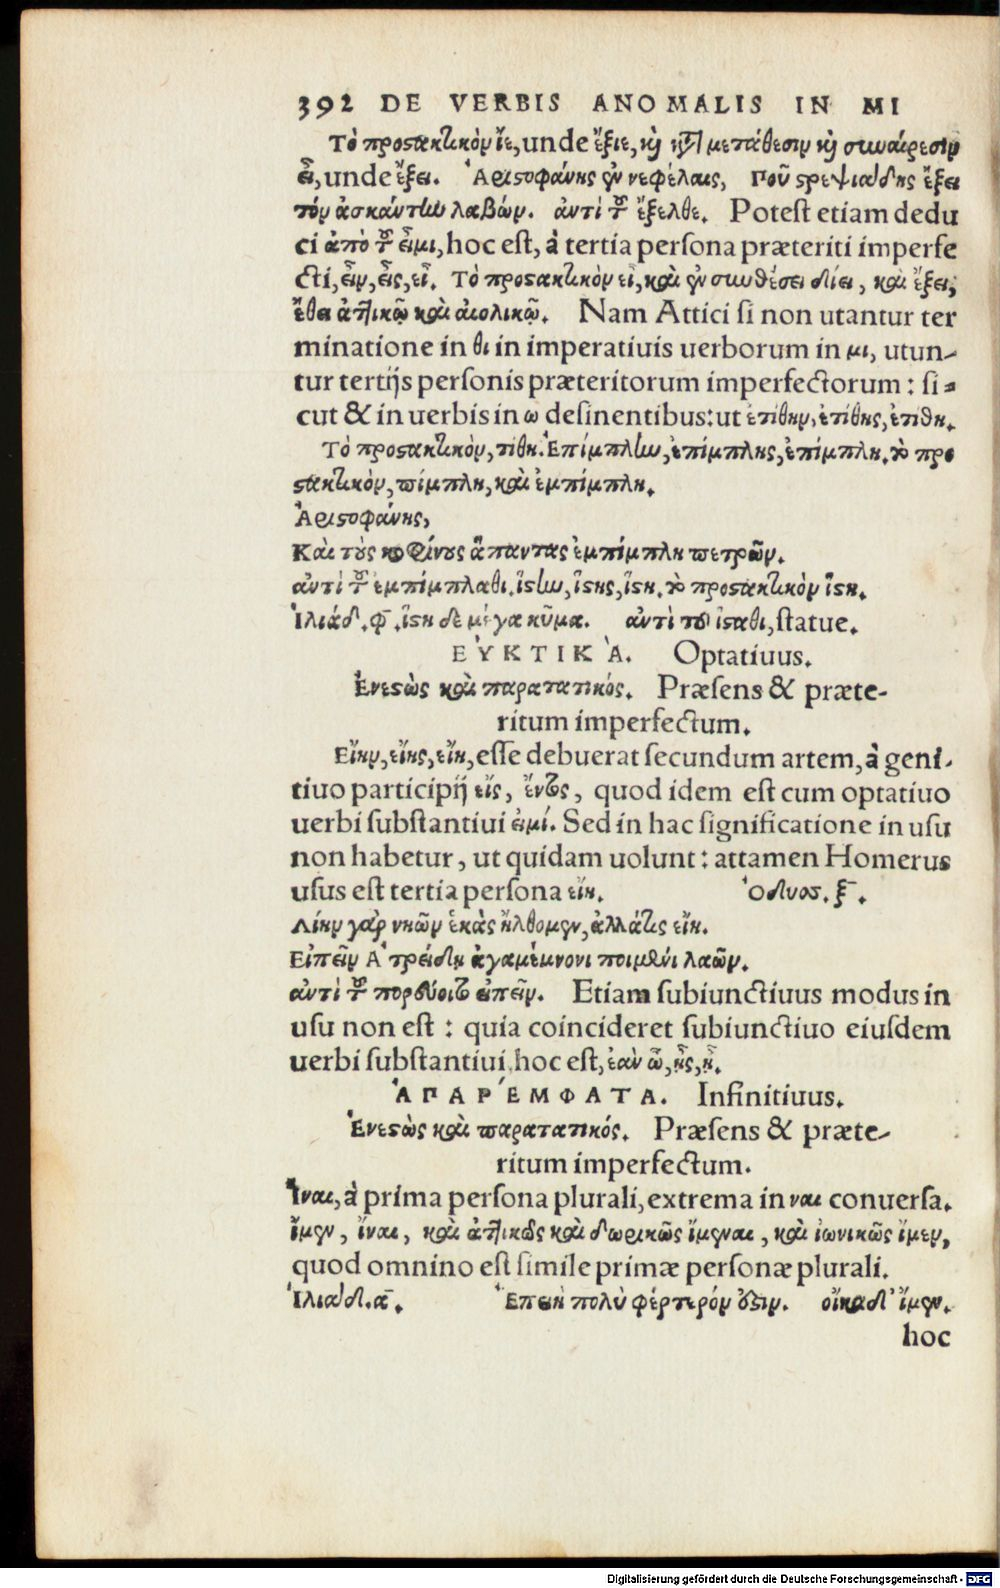 392 DE VERBIS ANOMALIS IN MI
Τὸ προστακτικὸν ἴε, unde ἔξιε, καὶ κατὰ μετάθεσιν καὶ συναίρεσιν
εἶ, unde ἔξει. Ἀριστοφάνης ἐν νεφέλαις, Ποῦ στρεψιάδης ἔξει
τὸν ἀσκάντην λαβών. ἀντὶ τοῦ ἔξελθε. Potest etiam dedu
ci ἀπὸ τοῦ εἶμι, hoc est, à tertia persona præteriti imperfe
cti, εἶν, εἶς, εἶ. Τὸ προστακτικὸν εἶ, καὶ ἐν συνθέσει δίει, καὶ ἔξει,
ἔθει ἀττικῷ καὶ αἰολικῷ. Nam Attici si non utantur ter
minatione in θι in imperatiuis uerborum in μι, utun-
tur tertijs personis præteritorum imperfectorum: si-
cut & in uerbis in ω desinentibus: ut ἐτίθην, ἐτίθης, ἐτίθη.
Τὸ προστακτικὸν, τίθη. Ἐπίμπλην, ἐπίμπλης, ἐπίμπλη. τὸ προ
στακτικὸν, πίμπλη, καὶ ἐμπίμπλη.
Ἀριστοφάνης,
Καὶ τοὺς κοφίνους ἅπαντας ἐμπίμπλη πετρῶν.
ἀντὶ τοῦ ἐμπίμπλαθι. ἵστην, ἵστης, ἵστη. τὸ προστακτικὸν ἵστη.
Ἰλιάδ. φ. ἵστη δὲ μέγα κῦμα. ἀντὶ τοῦ ἵσταθι, statue.
ΕΥ̓ΚΤΙΚᾺ. Optatiuus.
Ἐνεστὼς καὶ παρατατικός. Præsens & præte-
ritum imperfectum.
Εἴην, εἴης, εἴη, esse debuerat secundum artem, à geni-
tiuo participij εἴς, ἔντος, quod idem est cum optatiuo
uerbi substantiui εἰμί. Sed in hac significatione in usu
non habetur, ut quidam uolunt: attamen Homerus
usus est tertia persona εἴη. Ὀδυσ. ξ.
Λίην γὰρ νηῶν ἑκὰς ἤλθομεν, ἀλλά τις εἴη.
Εἰπεῖν Ἀτρείδῃ ἀγαμέμνονι ποιμένι λαῶν.
ἀντὶ τοῦ πορεύοιτο εἰπεῖν. Etiam subiunctiuus modus in
usu non est: quia coincideret subiunctiuo eiusdem
uerbi substantiui, hoc est, ἐὰν ὦ, ᾖς, ᾖ.
ἈΠΑΡΈΜΦΑΤΑ. Infinitiuus.
Ἐνεστὼς καὶ παρατατικός. Præsens & præte-
ritum imperfectum.
Ἴναι, à prima persona plurali, extrema in ναι conuersa.
ἴμεν, ἴναι, καὶ ἀττικῶς καὶ δωρικῶς ἴμεναι, καὶ ἰωνικῶς ἴμεν,
quod omnino est simile primæ personæ plurali.
Ἰλιάδ. α. Ἐπειὴ πολὺ φέρτερόν ἐστιν. οἴκαδ' ἴμεν.
hoc
Digitalisierung gefördert durch die Deutsche Forschungsgemeinschaft - DFG